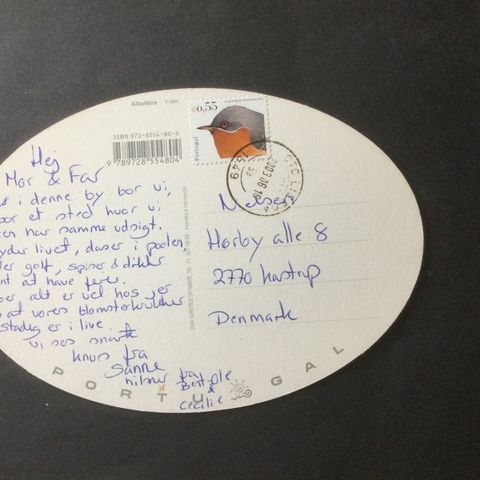 Albufeira
ISBN 972-8554-80-X
9 789728 554804
€0,55
Portugal
2003 06 1
1549
Hej
Mor & Far
i denne by bor vi,
bor et sted hvor vi
har samme udsigt.
livet, daser i poolen,
golf, spiser & drikker
at have ferie.
alt er vel hos jer
at vores blomsterkrukker
stadig er i live.
vi ses snart
knus fra
Sanne
hilsner fra
Bent Ole
&
Cecilie
Nielsen
Hørby alle 8
2770 Kastrup
Denmark
PORTUGAL